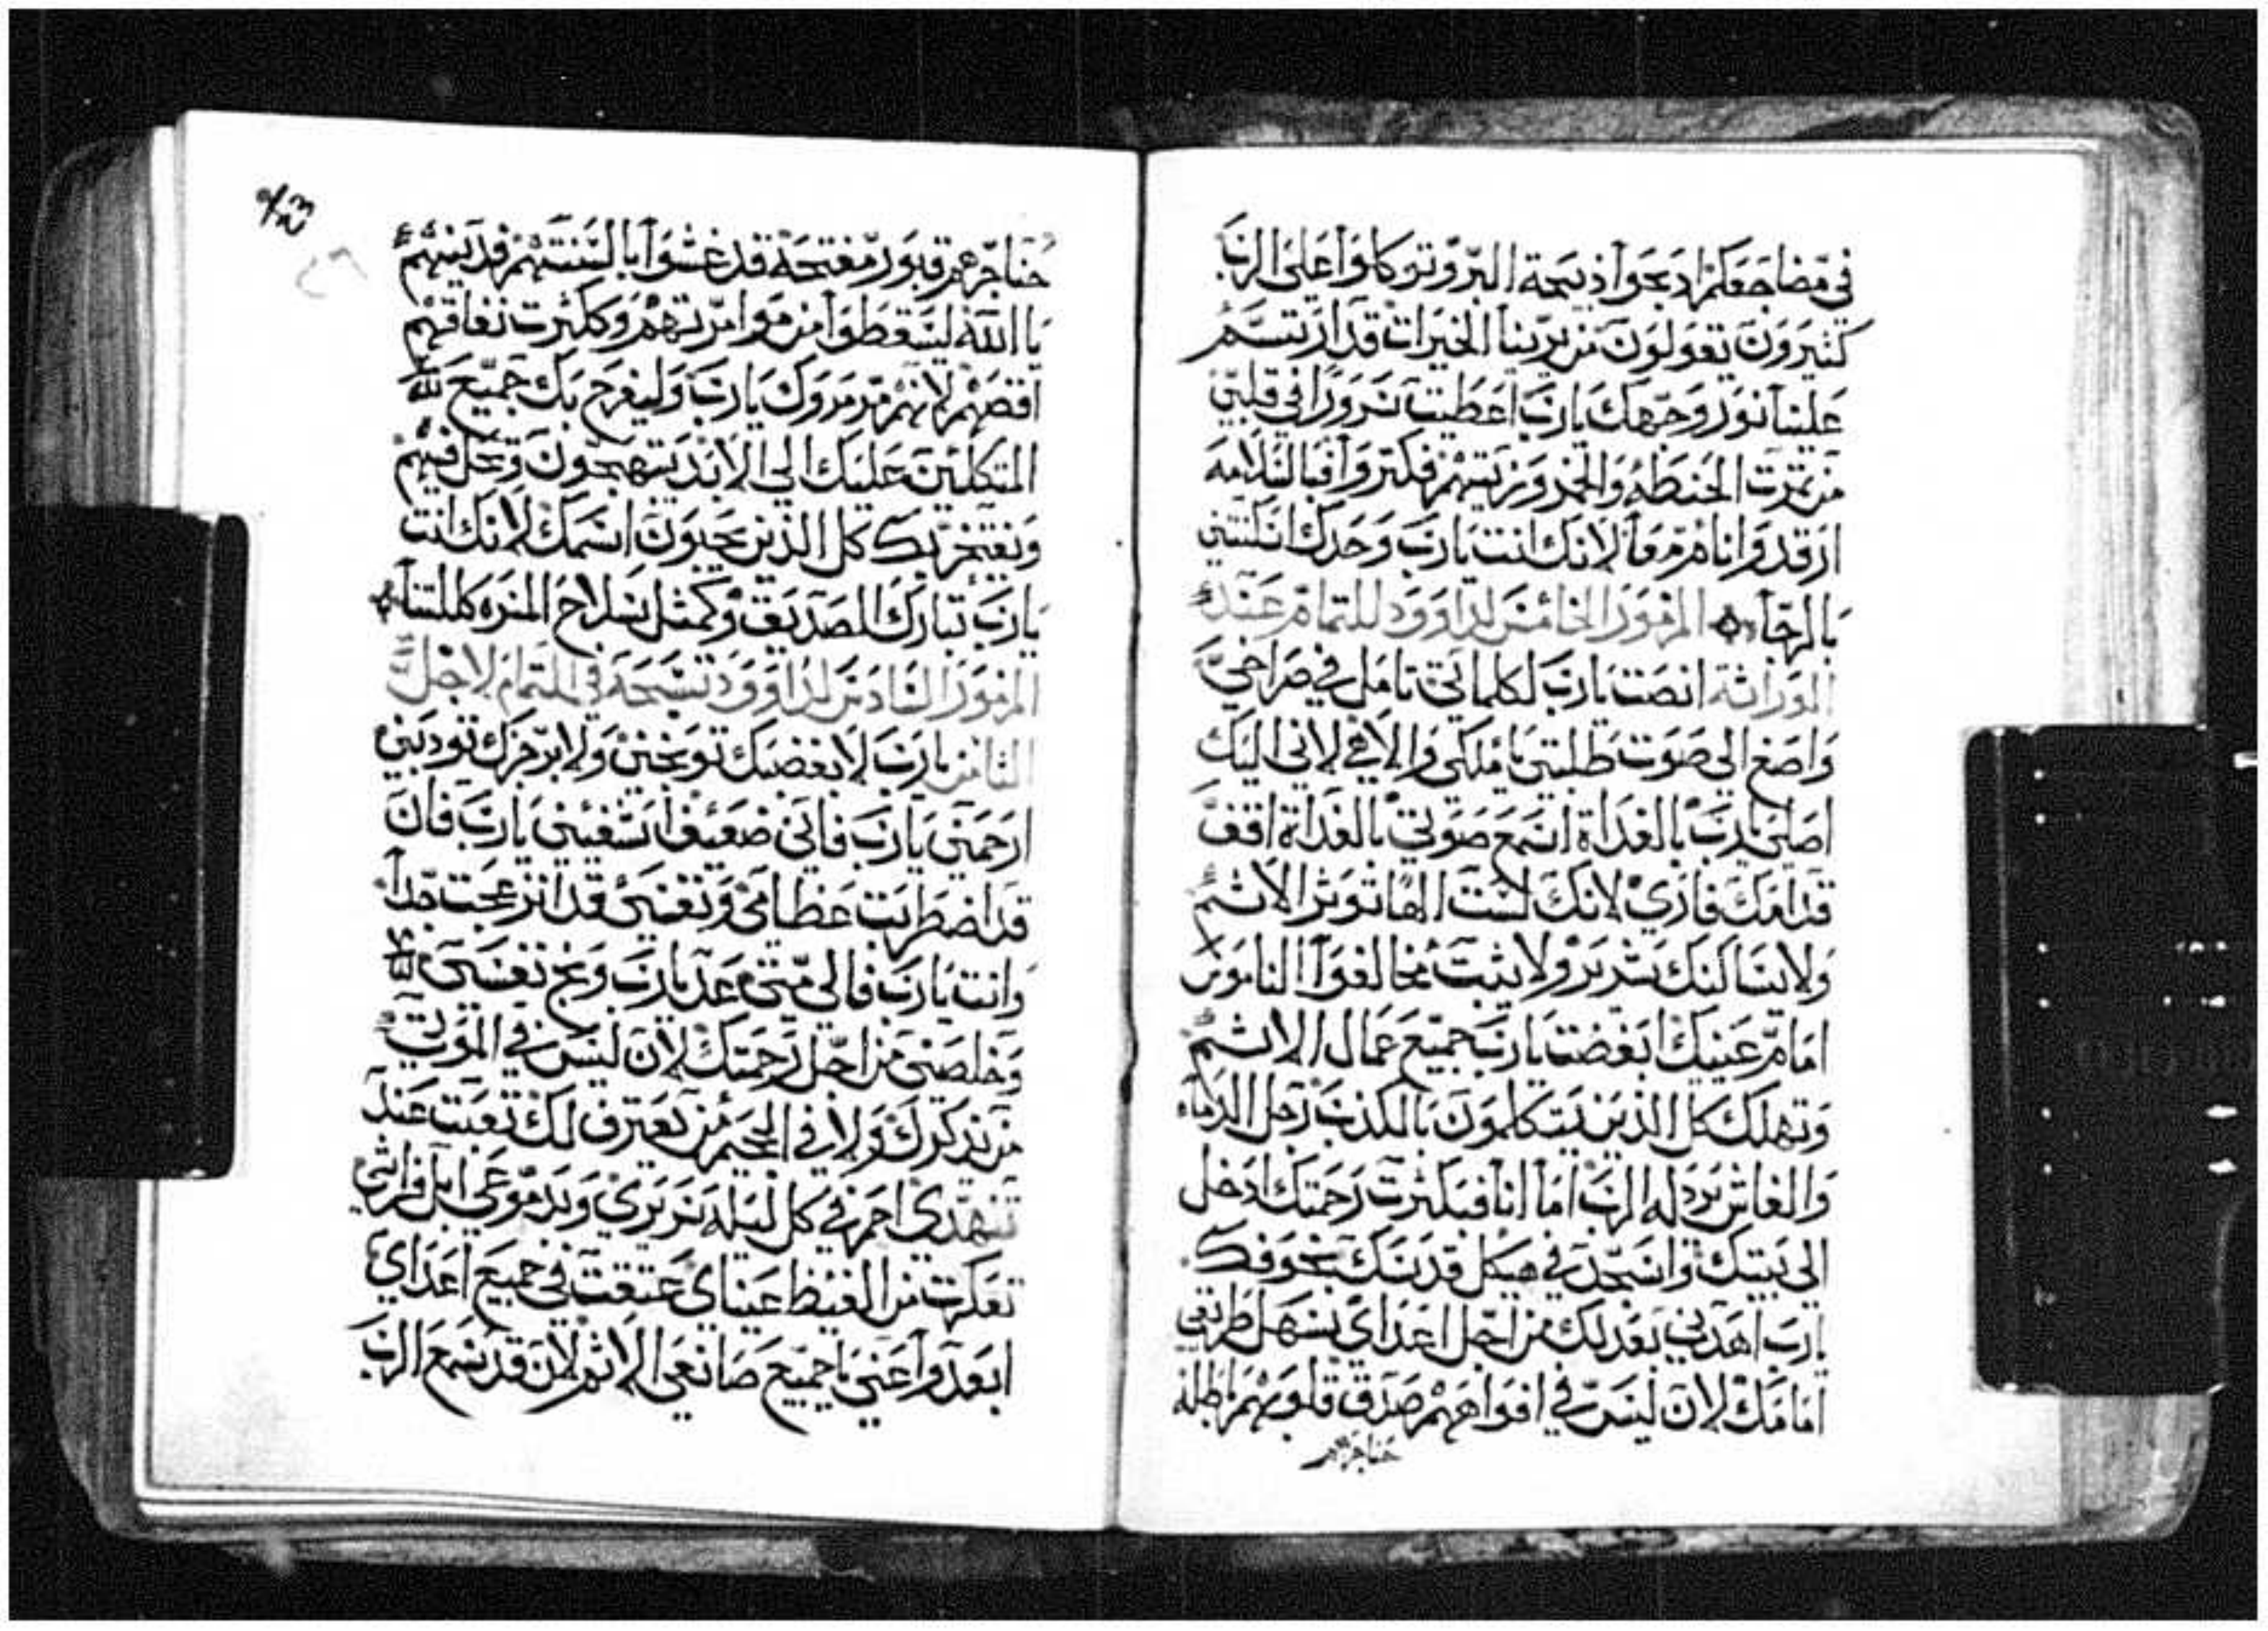 في مضاجعكم ادبحوا ذبيحة البر وتوكلوا على الرب
كثيرون يقولون من يرينا الخيرات قد ارتسم
علينا نور وجهك يارب اعطيت سرورا في قلبي
من تمرت الحنطه والخمر وزيتهم فكتروا فبالسلامه
ارقد وانام معا لانك انت يارب وحدك اسكنتني
بالرجاء المزمور الخامس لداوود للتمام عند
الوراثة انصت يارب لكلماتي تامل في صراخي
واصغ الي صوت طلبتي يا ملكي والاهي لاني اليك
اصلي يارب بالغداة اسمع صوتي بالغداة اقف
قدامك فاري لانك لست الها توثر الاثم
ولا يساكنك شرير ولا يثبت مخالفوا الناموس
امام عينيك ابغضت يارب جميع عمال الاثم
وتهلك كل الذين يتكلمون بالكذب رجل الدماء
والغاش يردله الرب اما انا فبكثرت رحمتك ادخل
الى بيتك واسجد في هيكل قدسك بخوفك
يارب اهدني بعدلك من اجل اعداي سهل طريقي
امامك لان ليس في افواههم صدق قلوبهم باطله
حناجرهم
حناجرهم قبور مفتحة قد غشوا بالسنتهم فدينهم
يا الله ليسقطوا من موامرتهم وككثرت نفاقهم
اقصهم لانهم مرمروك يارب وليفرح بك جميع
المتكلين عليك الي الابد يبتهجون وتحل فيهم
ويفتخر بك كل الذين يحبون اسمك لانك انت
يارب تبارك الصديق وكمثل سلاح المسره كللتنا
المزمور السادس لداوود تسبحه في التمام لاجل
الثامن يارب لا بغضبك توبخني ولا برجزك تودبني
ارحمني يارب فاني ضعيف اشفيني يارب فان
قد اضطربت عظامي ونفسي قد انزعجت جدا
وانت يارب فالى متى عد يارب ونج نفسي
وخلصني من اجل رحمتك لان ليس في الموت
من يذكرك ولا في الجحيم من يعترف لك تعبت عند
تنهدي احم في كل ليله سريري وبدموعي ابل فراشي
تعكرت من الغيظ عيناي عتقت في جميع اعداي
ابعدوا عني يا جميع صانعي الاثم لان قد سمع الرب